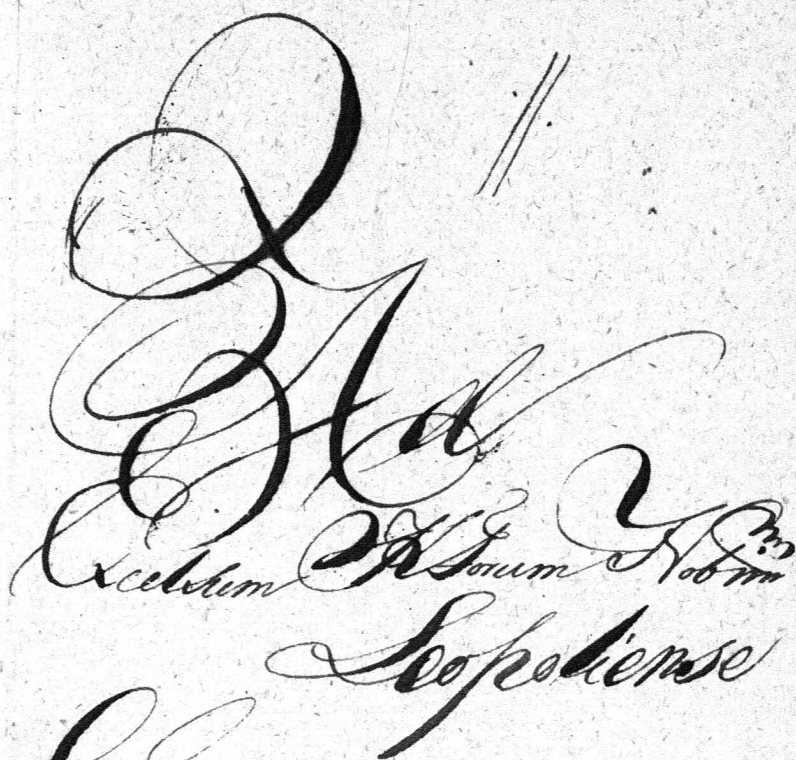 Ad
Excelsum K Forum Nobium
Leopoliense